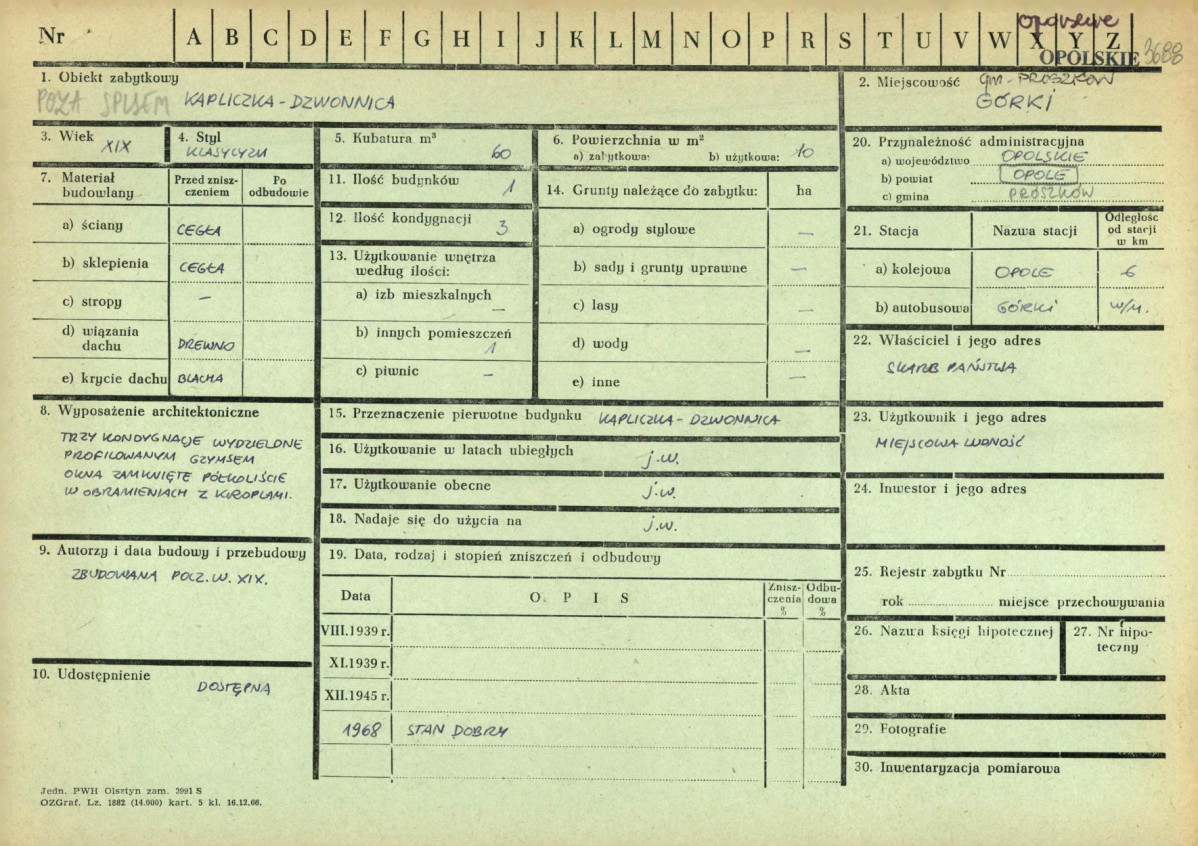 Nr
A B C D E F G H I J K L M N O P R S T U V W X Y Z
opolskie
OPOLSKIE 3688
1. Obiekt zabytkowy
POZA SPISEM KAPLICZKA-DZWONNICA
2. Miejscowość gm. PRÓSZKÓW
GÓRKI
3. Wiek
XIX
4. Styl
KLASYCYZM
5. Kubatura m³
60
6. Powierzchnia w m²
a) zabytkowa: b) użytkowa: 10
7. Materiał budowlany
Przed zniszczeniem
Po odbudowie
a) ściany CEGŁA
b) sklepienia CEGŁA
c) stropy –
d) wiązania dachu DREWNO
e) krycie dachu BLACHA
11. Ilość budynków 1
12. Ilość kondygnacji 3
13. Użytkowanie wnętrza
według ilości:
a) izb mieszkalnych –
b) innych pomieszczeń 1
c) piwnic –
14. Grunty należące do zabytku: ha
a) ogrody stylowe –
b) sady i grunty uprawne –
c) lasy –
d) wody –
e) inne –
20. Przynależność administracyjna
a) województwo OPOLSKIE
b) powiat OPOLE
c) gmina PRÓSZKÓW
21. Stacja
Nazwa stacji
Odległość od stacji w km
a) kolejowa OPOLE 6
b) autobusowa GÓRKI w/m.
22. Właściciel i jego adres
SKARB PAŃSTWA
8. Wyposażenie architektoniczne
TRZY KONDYGNACJE WYDZIELONE
PROFILOWANYM GZYMSEM
OKNA ZAMKNIĘTE PÓŁKOLIŚCIE
W OBRAMIENIACH Z KROPLAMI.
15. Przeznaczenie pierwotne budynku KAPLICZKA-DZWONNICA
16. Użytkowanie w latach ubiegłych j.w.
17. Użytkowanie obecne j.w.
18. Nadaje się do użycia na j.w.
23. Użytkownik i jego adres
MIEJSCOWA LUDNOŚĆ
24. Inwestor i jego adres
9. Autorzy i data budowy i przebudowy
ZBUDOWANA POCZ. W. XIX.
10. Udostępnienie
DOSTĘPNA
19. Data, rodzaj i stopień zniszczeń i odbudowy
Data
O P I S
Zniszczenia %
Odbudowa %
VIII.1939 r.
XI.1939 r.
XII.1945 r.
1968 STAN DOBRY
25. Rejestr zabytku Nr
rok miejsce przechowywania
26. Nazwa księgi hipotecznej
27. Nr hipoteczny
28. Akta
29. Fotografie
30. Inwentaryzacja pomiarowa
Jedn. PWH Olsztyn zam. 3991 S
OZGraf. Lz. 1882 (14.000) kart. 5 kl. 16.12.66.